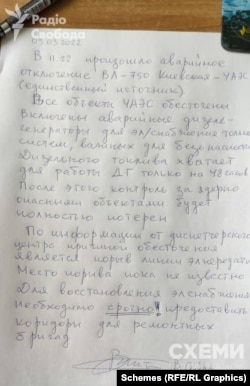 Радіо
Свобода
09.03.2022
В 11.22 произошло аварийное
отключение ВЛ-750 Киевская-ЧАЭС
(единственный источник)
Все объекты ЧАЭС обесточены
Включены аварийные дизель-
генераторы для эл/снабжения только
систем, важных для безопасности
Дизельного топлива хватает
для работы ДГ только на 48 часов
После этого контроль за ядерно
опасными объектами будет
полностью потерян
По информации от диспетчерского
центра причиной обесточения
является порыв линии эл/передачи
Место порыва пока не известно
Для восстановления эл.снабжения
необходимо срочно! предоставить
коридоры для ремонтных
бригад
СХЕМИ
Schemes (RFE/RL Graphics)